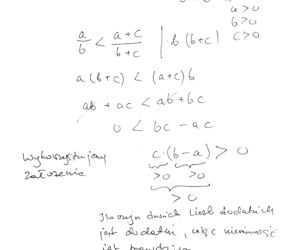 a > 0
b > 0
a/b < a+c/b+c | · b(b+c) c > 0
a(b+c) < (a+c)b
ab + ac < ab + bc
0 < bc − ac
Wykorzystujemy c·(b−a) > 0
założenia >0 >0
> 0
Iloczyn dwóch liczb dodatnich
jest dodatni, więc nierówność
jest prawdziwa